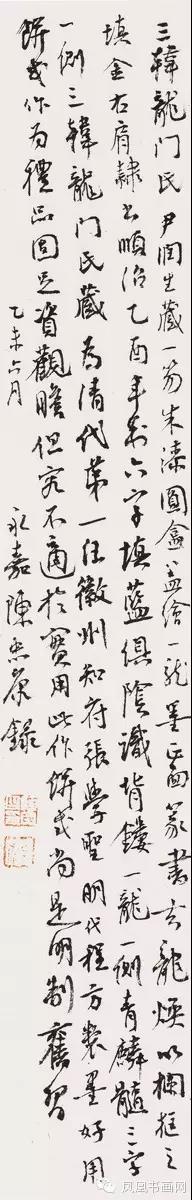 三韓龍门民尹润生藏一笏朱漆圓盒盖绘一龙墨正面篆書玄龍煙以欄框之
填金右肩隸書順治乙酉年製六字填藍俱陰識背鏤一龍一側青麟髓三字
一側三韓龍门民藏为清代第一任徽州知府張學聖明代程方製墨好用
餅式作为禮品固足資觀瞻但究不適於實用此作餅式尚是明制舊習
乙未六月 永嘉陳忠康錄
凤凰书画网